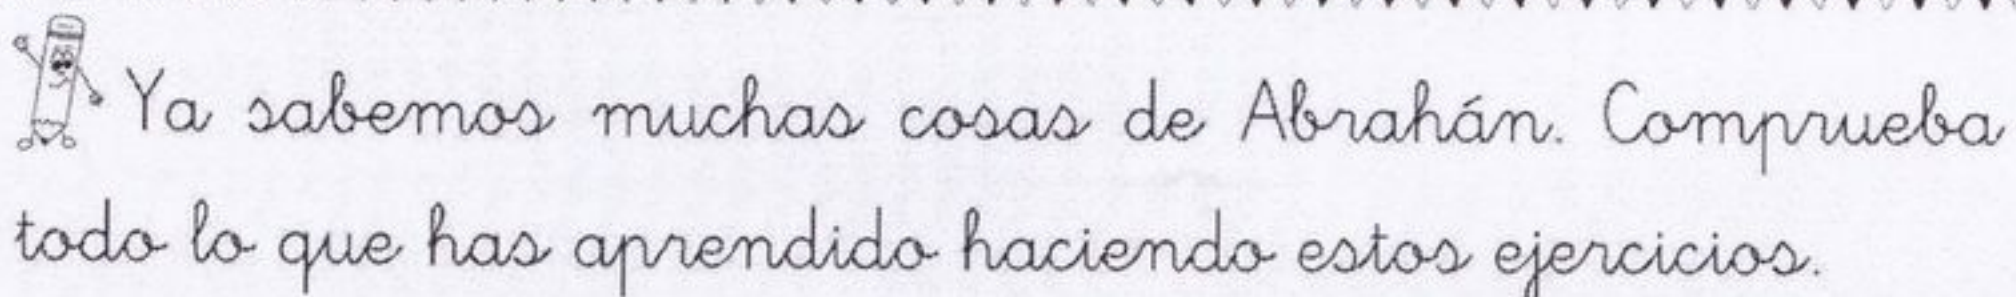 Ya sabemos muchas cosas de Abrahán. Comprueba
todo lo que has aprendido haciendo estos ejercicios.